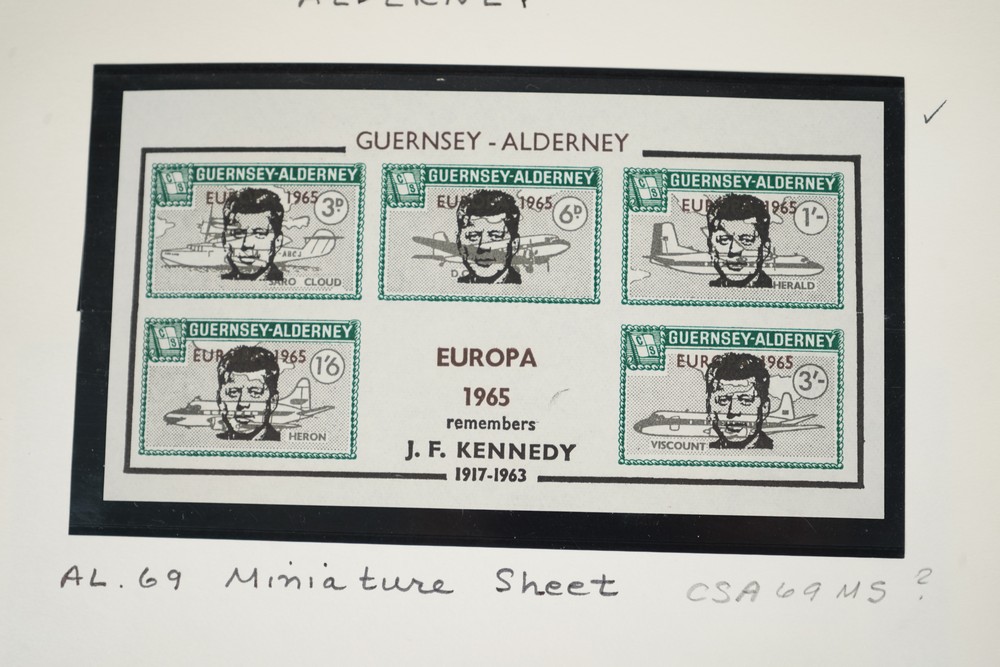 ALDERNEY
GUERNSEY - ALDERNEY
GUERNSEY-ALDERNEY
CS
EUR 1965
3D
ABCJ
SARO CLOUD
GUERNSEY-ALDERNEY
CS
EU 1965
6D
D
GUERNSEY-ALDERNEY
CS
EUR 1965
1'-
HERALD
GUERNSEY-ALDERNEY
CS
EUR 1965
1'6
HERON
EUROPA
1965
remembers
J. F. KENNEDY
1917-1963
GUERNSEY-ALDERNEY
CS
EUR 1965
3'-
VISCOUNT
AL.69 Miniature Sheet
CSA 69 MS ?